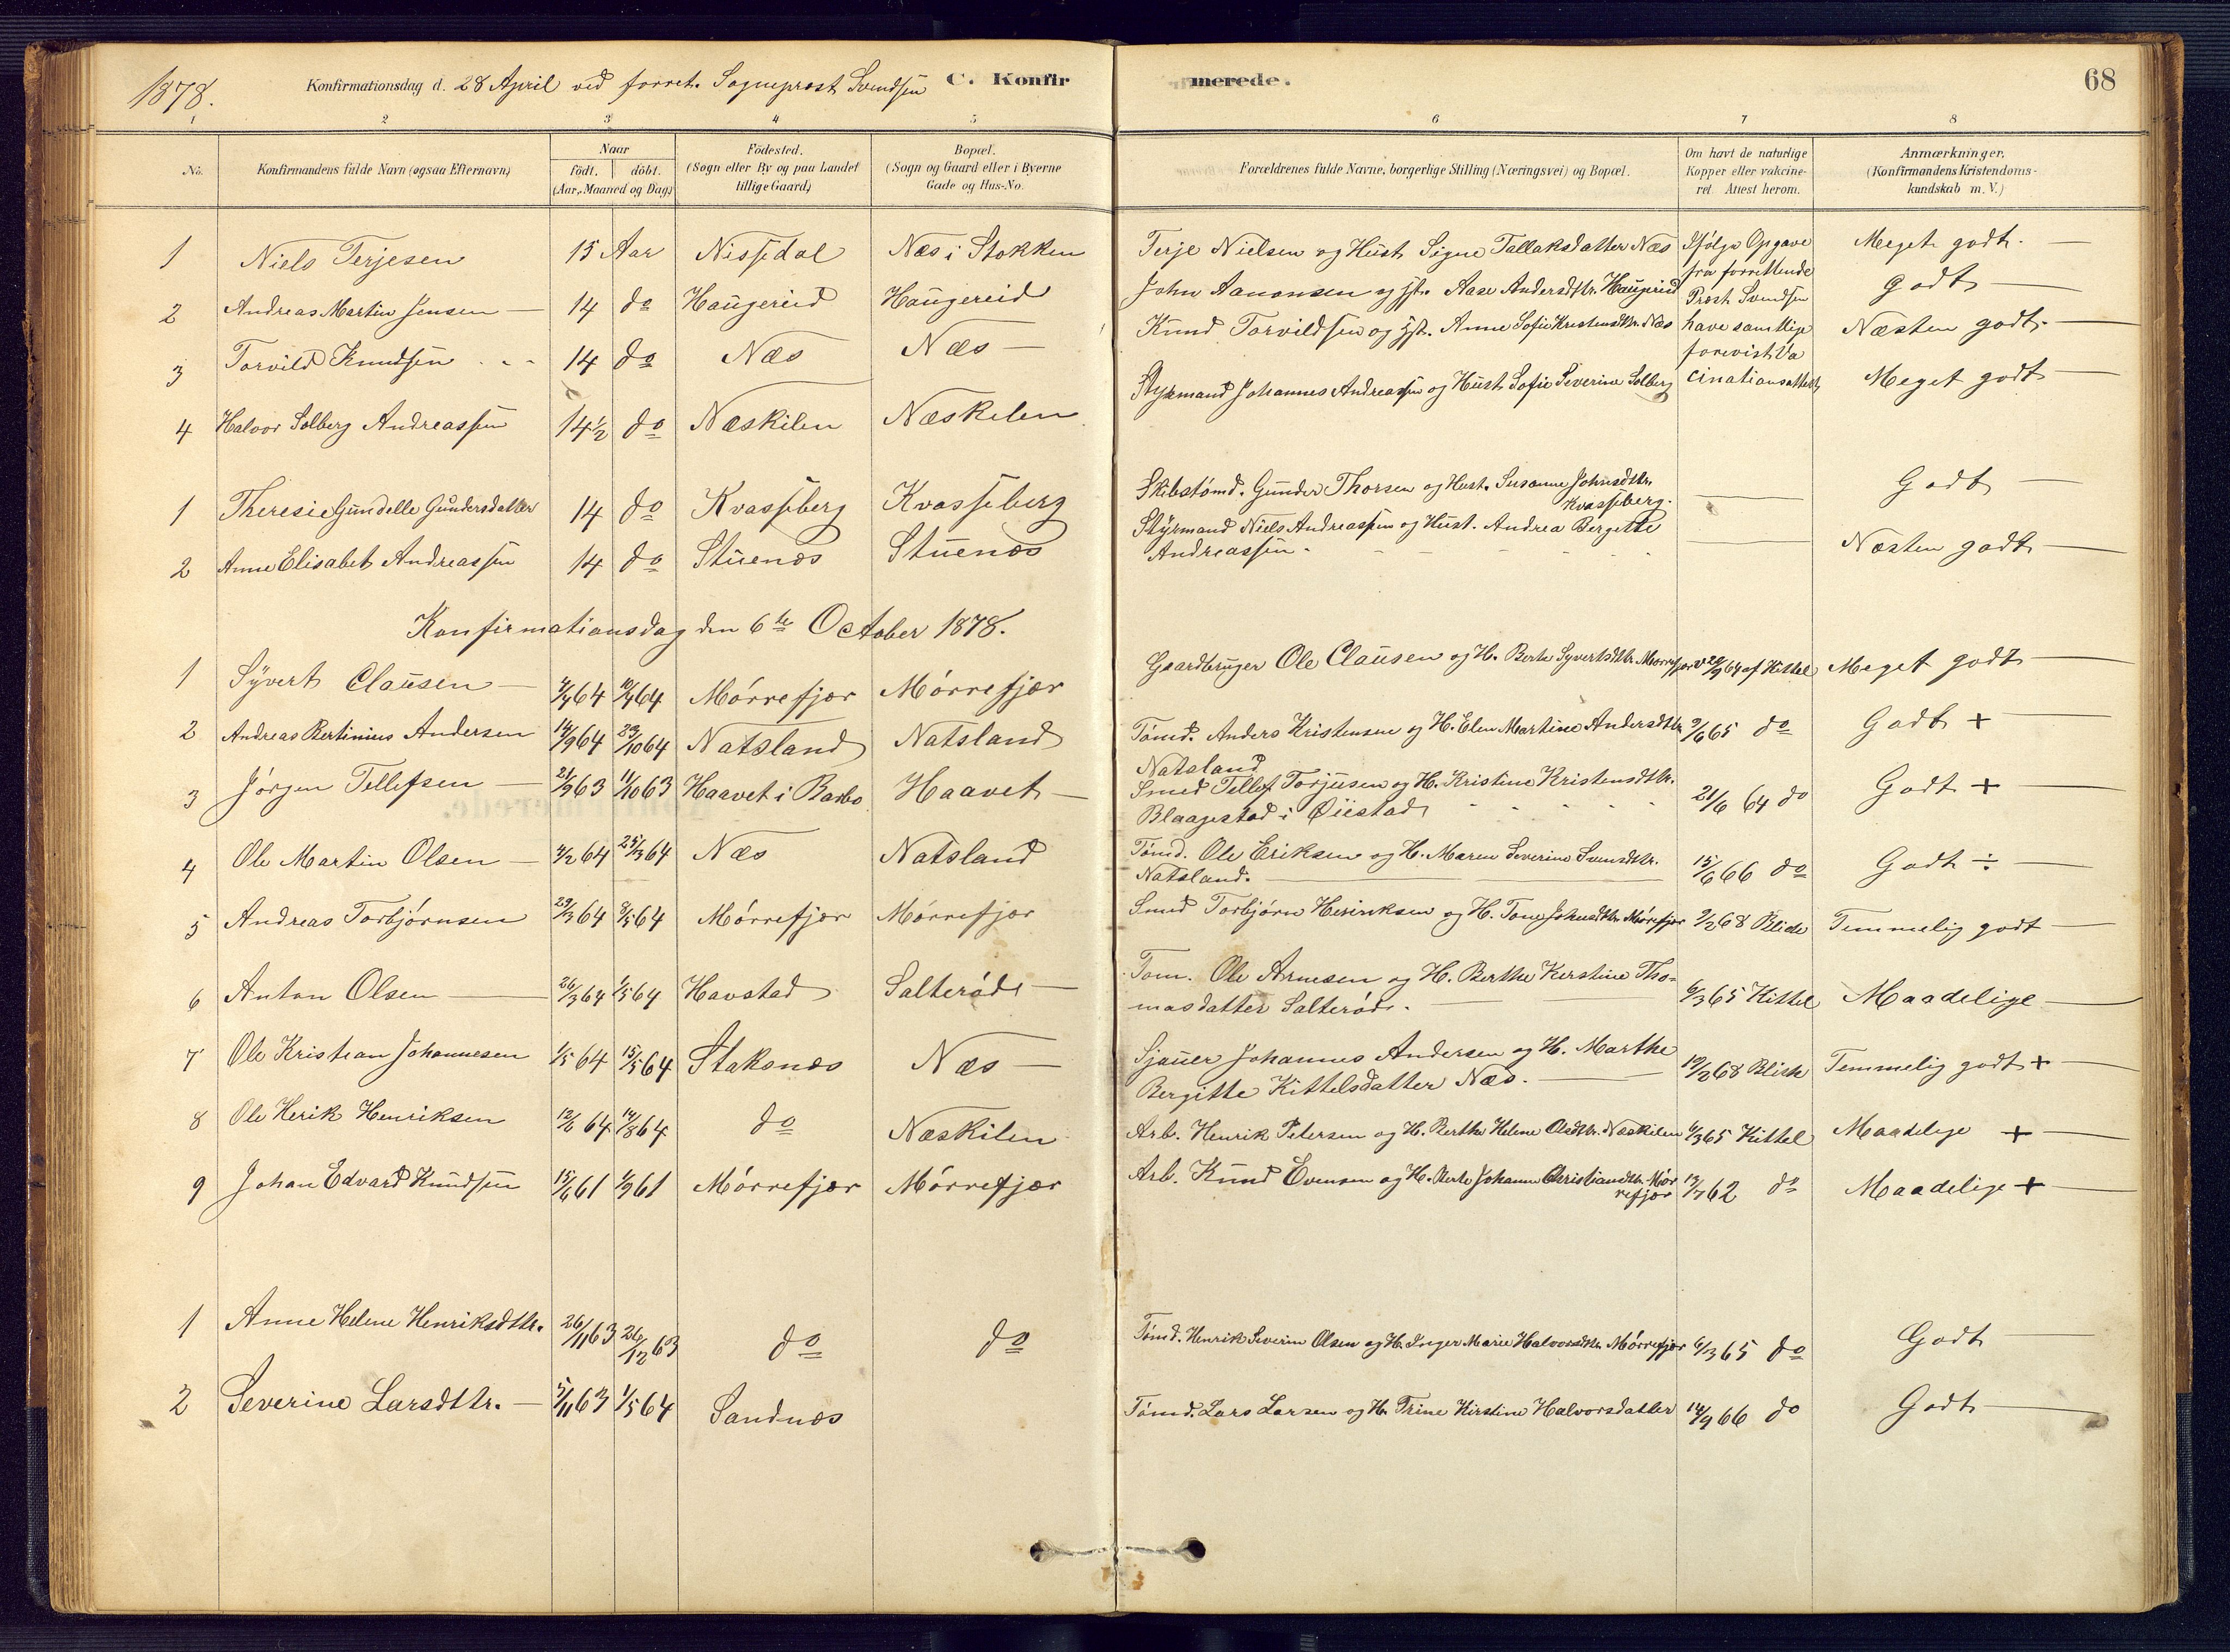 1878. Konfirmationsdag d. 28 April ved forret. Sogneprest Svendsen C. Konfirmerede. 68
1 2 3 4 5 6 7 8
No. Konfirmandens fulde Navn (ogsaa Efternavn) Naar födt. döbt. (Aar, Maaned og Dag) Födested. (Sogn eller By og paa Landet tillige Gaard) Bopæl. (Sogn og Gaard eller i Byerne Gade og Hus-No. Forældrenes fulde Navne, borgerlige Stilling (Næringsvei) og Bopæl. Om havt de naturlige Kopper eller vakcineret. Attest herom. Anmærkninger. (Konfirmandens Kristendomskundskab m. V.)
1 Niels Terjesen 15 Aar Nissedal Næs i Stokken Terje Nielsen og Hust Signe Tallaksdatter Næs Ifølge Opgave Meget godt.
fra forrettende
2 Andreas Martin Jensen 14 do Haugereid Haugereid John Aanonsen og Hst. Aase Andersdttr. Haugereid Prest Svendsen godt
3 Torvild Knudsen 14 do Næs Næs Knud Torvildsen og Hst. Anne Sofie Kristensdttr. Næs have samtlige Næsten godt
forevist Va
4 Halvor Solberg Andreassen 14½ do Næskilen Næskilen Styrmand Johannes Andreassen og Hust Sofie Severine Solberg cinationsattest Meget godt
1 Theresie Gundelle Gundersdatter 14 do Kvasseberg Kvasseberg Skibstömd. Gunder Thorsen og Hust. Susanne Johnsdttr. Godt
Kvasseberg.
2 Anne Elisabet Andreassen 14 do Stuenæs Stuenæs Styrmand Niels Andreassen og Hust. Andrea Bergette Næsten godt
Andreassen.
Konfirmationsdag den 6te October 1878.
1 Syvert Clausen 4/4 64 10/4 64 Mörrefjær Mörrefjær Gaardbruger Ole Clausen og H. Berte Syvertsdttr. Mörrefjær 28/9 64 af Kittel Meget godt
2 Andreas Bertinius Andersen 14/9 64 23/10 64 Natsland Natsland Tömd. Anders Kristensen og H. Elen Martine Andersdttr. 9/6 65 do Godt +
Natsland
3 Jörgen Tellefsen 21/9 63 11/10 63 Haavet i Barbo Haavet Smed Tellef Torjusen og H. Kristine Kristensdttr. 21/6 64 do Godt +
Blaagestad i Öiestad
4 Ole Martin Olsen 4/2 64 25/3 64 Næs Natsland Tömd. Ole Eriksen og H. Maren Severine Svensdttr. 15/6 66 do Godt ÷
Natsland.
5 Andreas Torbjörnsen 29/3 64 8/5 64 Mörrefjær Mörrefjær Smed Torbjörn Henriksen og H. Tone Johnsdttr. Mörefjær 9/2 68 Blide Temmelig godt
6 Anton Olsen 26/3 64 1/5 64 Havstad Salteröd Tom. Ole Arnesen og H. Berthe Kerstine Tho= 6/3 65 Kittel Maadelige
masdatter Salteröd.
7 Ole Kristian Johannesen 1/5 64 15/5 64 Staksnæs Næs Sjauer Johannes Andersen og H. Marthe 19/2 68 Temmelig godt +
Bergitte Kittelsdatter Næs.
8 Ole Herik Henriksen 12/6 64 14/8 64 do Næskilen Arb. Henrik Petersen og H. Berthe Helene Olsdttr. Næskilen 6/3 65 Kittel Maadelige +
9 Johan Edvard Knudsen 15/6 61 1/9 61 Mörrefjær Mörrefjær Arb. Knud Evensen og H. Berte Johanne Christiansdttr. Mör 12/7 62 do Maadelige +
refjær
1 Anne Helene Henriksdttr. 26/11 63 26/12 63 do do Tömd. Henrik Severin Olsen og H. Inger Marie Halvorsdttr. Mörrefjær 6/3 65 do Godt
2 Severine Larsdttr. 5/11 63 1/5 64 Sandnæs Tömd. Lars Larsen og H. Trine Kirstine Halvorsdatter 14/9 66 do Godt